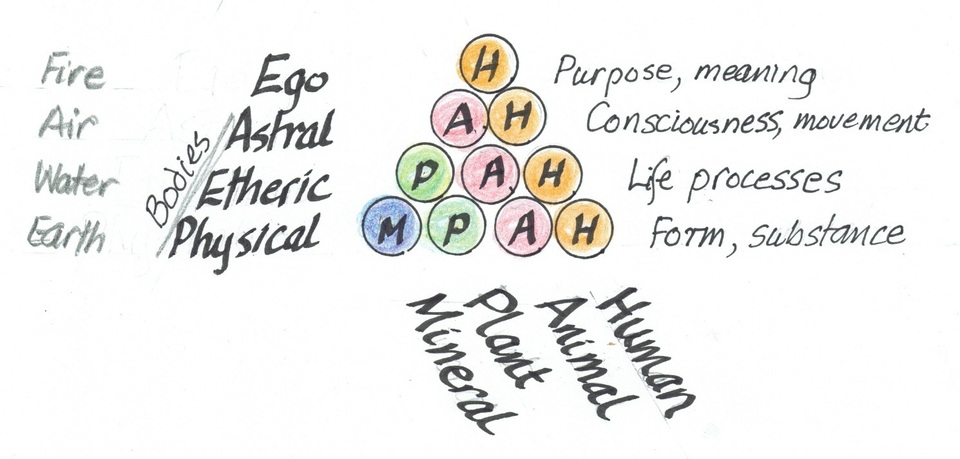 Fire Ego H Purpose, meaning
Air Astral A H Consciousness, movement
Water Etheric P A H Life processes
Earth Physical M P A H Form, substance
Bodies
Mineral
Plant
Animal
Human